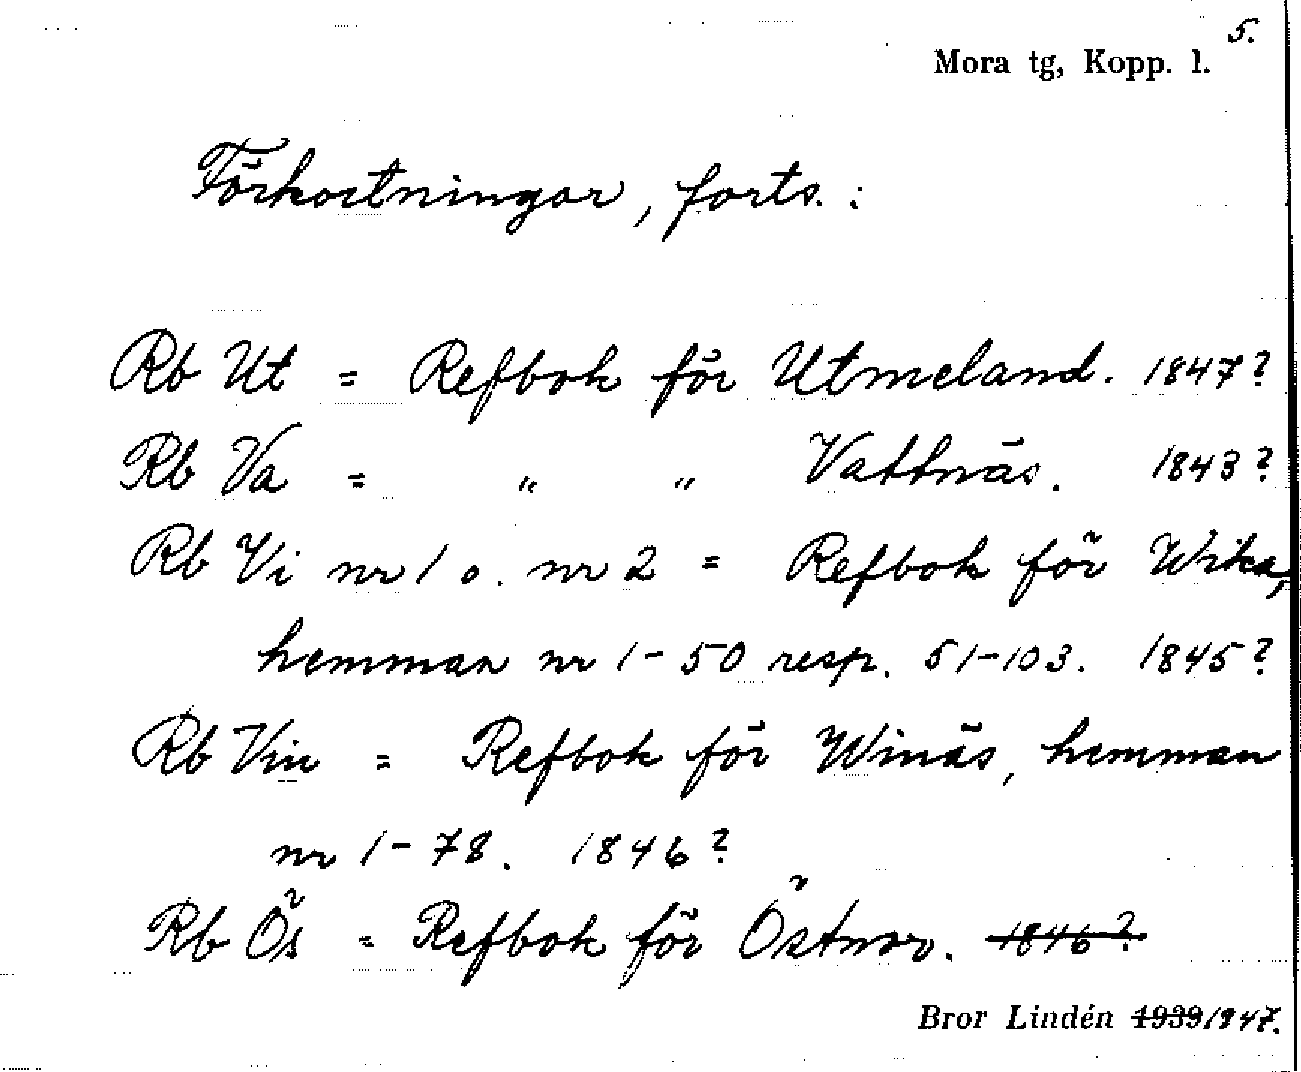 5.
Mora tg, Kopp. l.
Förkortningar, forts. :
Rb Ut = Refbok för Utmeland. 1847?
Rb Va = " " Vattnäs. 1843?
Rb Vi nr 1 o. nr 2 = Refbok för Wika,
hemman nr 1-50 resp. 51-103. 1845?
Rb Vin = Refbok för Winäs, hemman
nr 1-78. 1846?
Rb Ös = Refbok för Östnor. 1846?
Bror Lindén 1939 1947.